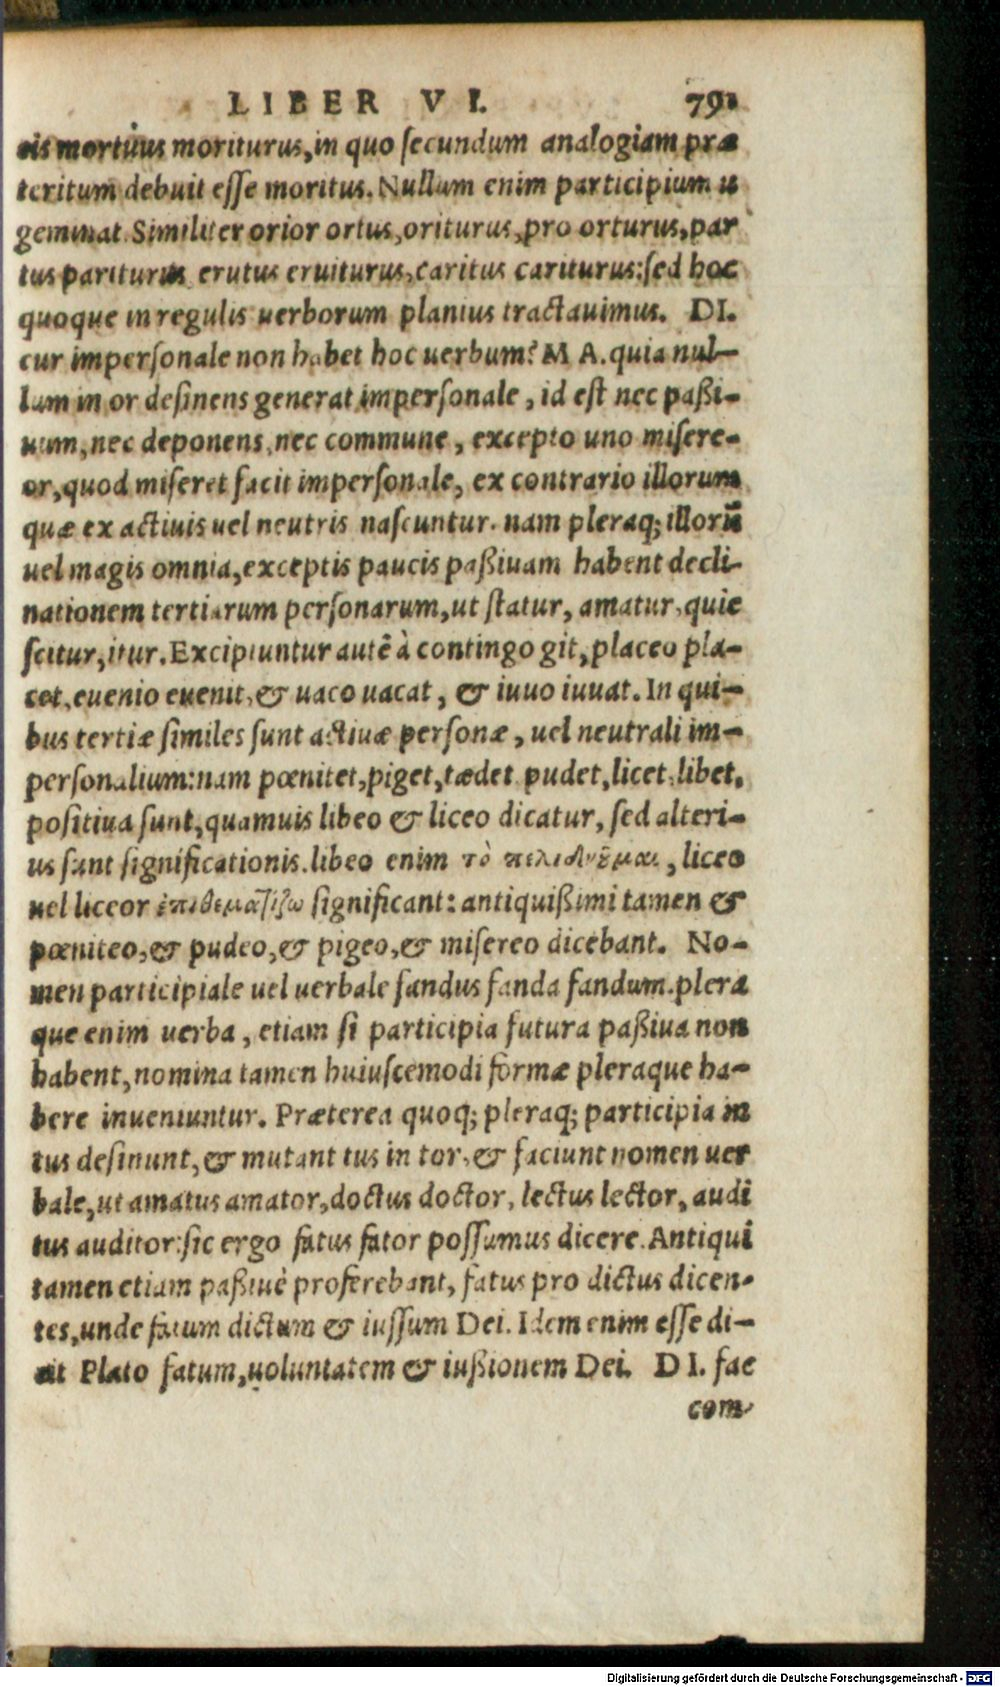 LIBER VI. 791
eis mortuus moriturus, in quo secundum analogiam præ
teritum debuit esse moritus. Nullum enim participium u
geminat. Similiter orior ortus, oriturus, pro orturus, par
tus pariturus erutus eruiturus, caritus cariturus: sed hoc
quoque in regulis uerborum planius tractauimus. DI.
cur impersonale non habet hoc uerbum? MA. quia nul-
lum in or desinens generat impersonale, id est nec paßi-
uum, nec deponens, nec commune, excepto uno misere-
or, quod miseret facit impersonale, ex contrario illorum
quæ ex actiuis uel neutris nascuntur. nam pleraq; illorū
uel magis omnia, exceptis paucis paßiuam habent decli-
nationem tertiarum personarum, ut statur, amatur, quie
scitur, itur. Excipiuntur autē à contingo git, placeo pla-
cet, euenio euenit, & uaco uacat, & iuuo iuuat. In qui-
bus tertiæ similes sunt actiuæ personæ, uel neutrali im-
personalium: nam pœnitet, piget, tædet pudet, licet, libet,
positiua sunt, quamuis libeo & liceo dicatur, sed alteri-
us sunt significationis. libeo enim τὸ, liceo
uel liceor significant: antiquißimi tamen &
pœniteo, & pudeo, & pigeo, & misereo dicebant. No-
men participiale uel uerbale fandus fanda fandum. plera
que enim uerba, etiam si participia futura paßiua non
habent, nomina tamen huiuscemodi formæ pleraque ha-
bere inueniuntur. Præterea quoq; pleraq; participia in
tus desinunt, & mutant tus in tor, & faciunt nomen uer
bale, ut amatus amator, doctus doctor, lectus lector, audi
tus auditor: sic ergo fatus fator possumus dicere. Antiqui
tamen etiam paßiuè proferebant, fatus pro dictus dicen-
tes, unde fatum dictum & iussum Dei. Idem enim esse di-
cit Plato fatum, uoluntatem & iußionem Dei. DI. fac
com-
Digitalisierung gefördert durch die Deutsche Forschungsgemeinschaft - DFG